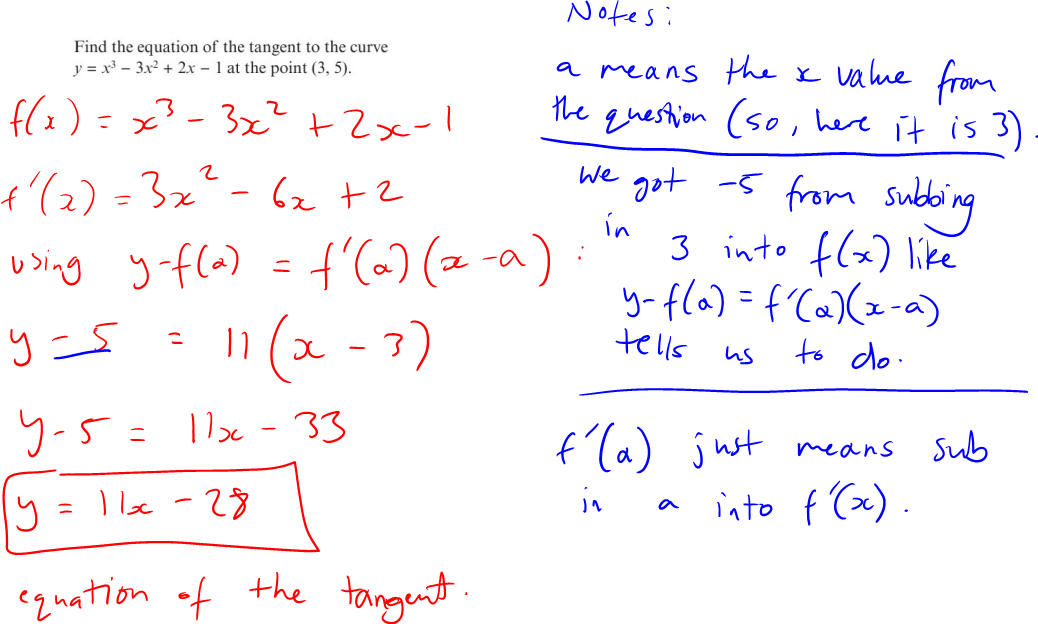 Find the equation of the tangent to the curve
y = x³ – 3x² + 2x – 1 at the point (3, 5).
f(x) = x³ - 3x² + 2x - 1
f'(x) = 3x² - 6x + 2
using y-f(a) = f'(a)(x-a) :
y - 5 = 11(x - 3)
y - 5 = 11x - 33
y = 11x - 28
equation of the tangent.
Notes:
a means the x value from
the question (so, here it is 3).
We got -5 from subbing
in 3 into f(x) like
y-f(a) = f'(a)(x-a)
tells us to do.
f'(a) just means sub
in a into f'(x).